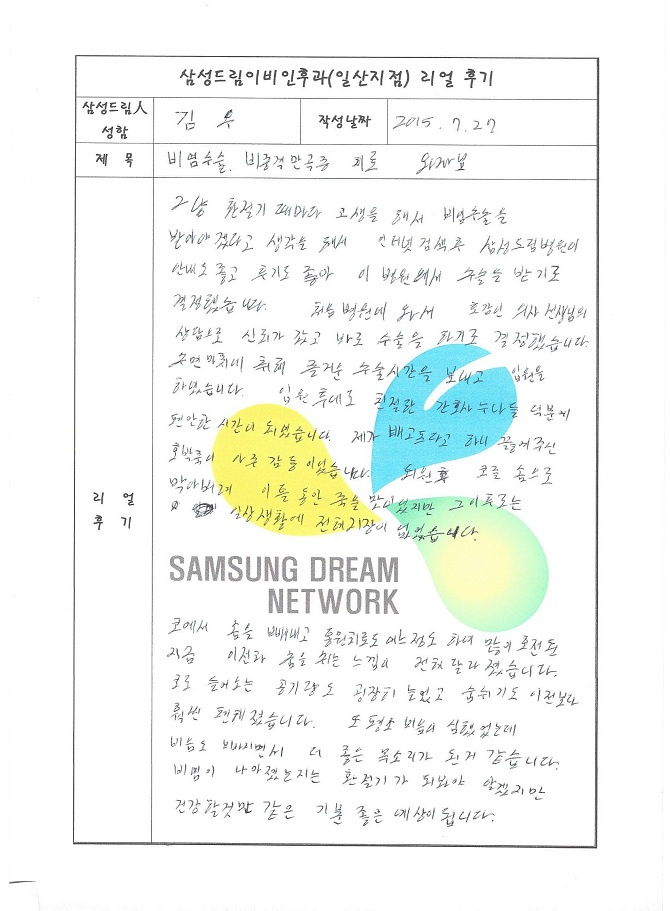 삼성드림이비인후과(일산지점) 리얼 후기
삼성드림人 성함
김 우
작성날짜
2015. 7. 27
제 목
비염수술, 비중격만곡증 치료
리 얼 후 기
그냥 환절기 때마다 고생을 해서 비염수술을
받아야겠다고 생각을 해서 인터넷검색후 삼성드림병원이
안내도 좋고 후기도 좋아 이 병원에서 수술을 받기로
결정했습니다. 처음 병원에 와서 호감인 의사 선생님의
상담으로 신뢰가 갔고 바로 수술을 하기로 결정했습니다
수면마취에 취해 즐거운 수술시간을 보내고 입원을
하였습니다. 입원 후에도 친절한 간호사 누나들 덕분에
편안한 시간이 되었습니다. 제가 배고프다고 하니 끓여주신
호박죽이 아주 감동이었습니다. 퇴원후 코를 솜으로
막아버려 이틀 동안 죽을 맛이었지만 그 이후로는
일상생활에 전혀 지장이 없었습니다.
SAMSUNG DREAM
NETWORK
코에서 솜을 빼내고 통원치료도 어느정도 하여 많이 호전된
지금 이전과 숨을 쉬는 느낌이 전혀 달라졌습니다.
코로 들어오는 공기량도 굉장히 늘었고 숨쉬기도 이전보다
훨씬 편해졌습니다. 또 평소 비음이 심했었는데
비음도 빠지면서 더 좋은 목소리가 된거 같습니다.
비염이 나아졌는지는 환절기가 되봐야 알겠지만
건강할것만 같은 기분 좋은 예상이 됩니다.